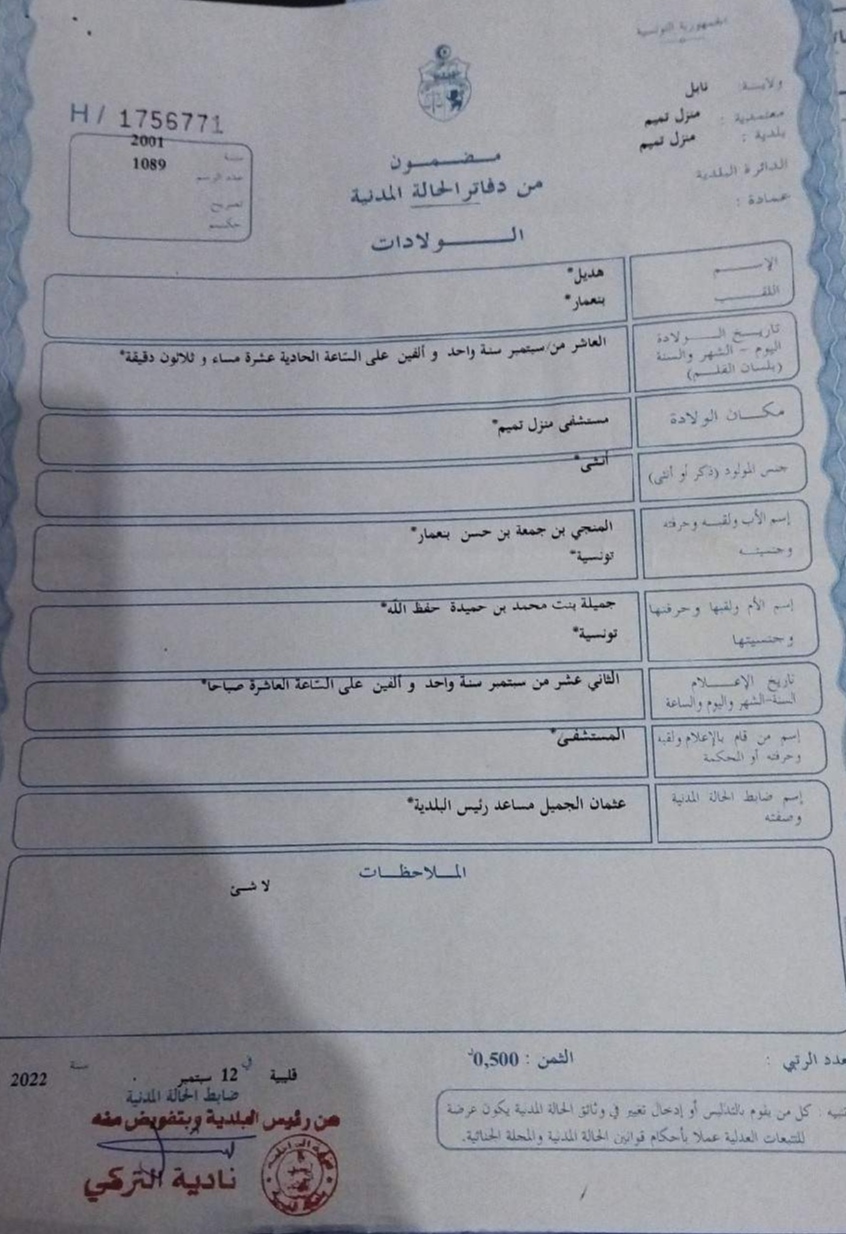 الجمهورية التونسية
ولاية: نابل
معتمدية: منزل تميم
بلدية: منزل تميم
الدائرة البلدية
عمادة:
H/ 1756771
سنة 2001
عدد الرسم 1089
تصريح
حكم
مضمون
من دفاتر الحالة المدنية
الولادات
الإسم هديل*
اللقب بنعمار*
تاريخ الولادة
اليوم - الشهر والسنة
(بلسان القلم)
العاشر من/سبتمبر سنة واحد و ألفين على السّاعة الحادية عشرة مساء و ثلاثون دقيقة*
مكان الولادة مستشفى منزل تميم*
جنس المولود (ذكر أو أنثى) أنثى*
إسم الأب ولقبه وحرفته المنجي بن جمعة بن حسن بنعمار*
وجنسيته تونسية*
إسم الأم ولقبها وحرفتها جميلة بنت محمد بن حميدة حفظ الله*
وجنسيتها تونسية*
تاريخ الإعلام
السنة-الشهر واليوم والساعة
الثاني عشر من سبتمبر سنة واحد و ألفين على السّاعة العاشرة صباحا*
إسم من قام بالإعلام ولقبه
وحرفته أو المحكمة
المستشفى*
إسم ضابط الحالة المدنية
وصفته
عثمان الجميل مساعد رئيس البلدية*
الملاحظات
لا شئ
عدد الرتبي :
الثمن : 0,500د
تنبيه : كل من يقوم بالتدليس أو إدخال تغيير في وثائق الحالة المدنية يكون عرضة
للتتبعات العدلية عملا بأحكام قوانين الحالة المدنية والمجلة الجنائية.
قليبية في 12 سبتمبر سنة 2022
ضابط الحالة المدنية
عن رئيس البلدية وبتفويض منه
نادية التركي